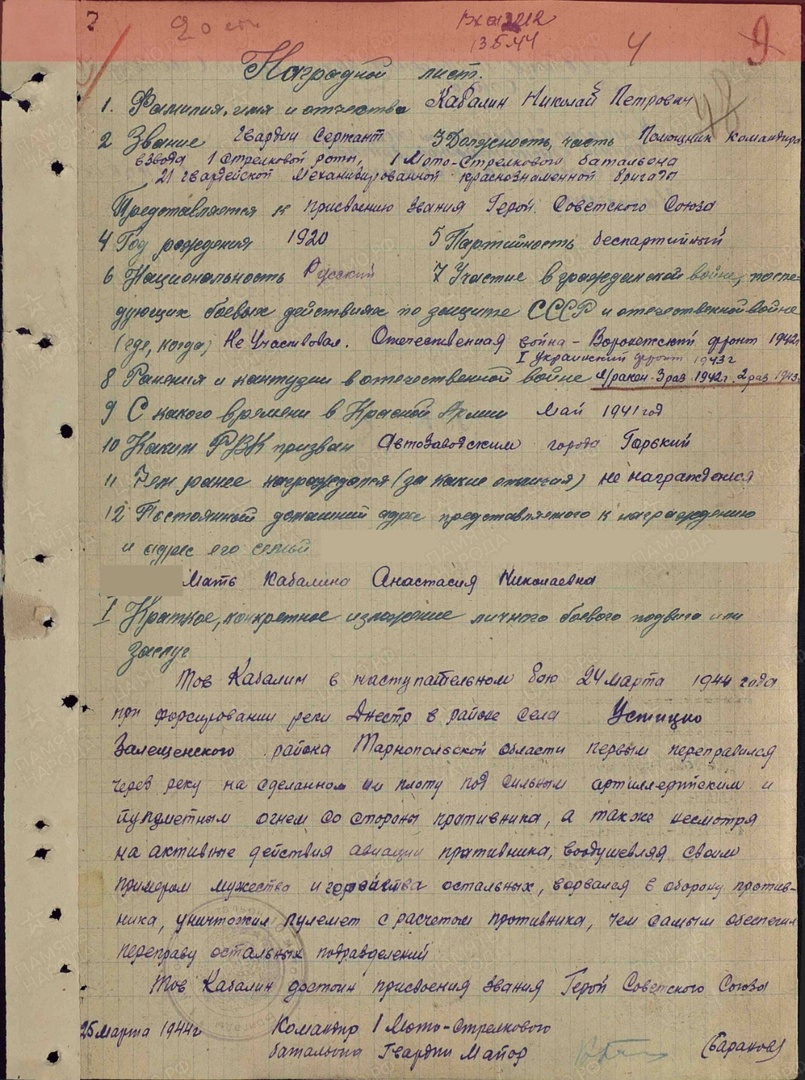 20
Вх 01212
13.5.44
4
9
48
Наградной лист.
1. Фамилия, имя и отчество Кабалин Николай Петрович
2 Звание Гвардии Сержант 3 Должность, часть Помощник командира
взвода 1 Стрелковой роты, 1 Мото-Стрелкового батальона
21 Гвардейской Механизированной краснознаменной бригады
Представляется к присвоению звания Герой Советского Союза
4 Год рождения 1920 5 Партийность беспартийный
6 Национальность Русский 7 Участие в гражданской войне, после-
дующих боевых действиях по защите СССР и отечественной войне
(где, когда) Не Участвовал. Отечественная война - Воронежский фронт 1942г
I Украинский фронт 1943г
8 Ранения и контузии в отечественной войне л/ранен-3 раз. 1942г. 2 раз 1943г
9 С какого времени в Красной Армии Май 1941 год
10 Каким РВК призван Автозаводским города Горький
11 Чем ранее награждался (за какие отличия) не награждался
12 Постоянный домашний адрес представляемого к награждению
и адрес его семьи
Мать Кабалина Анастасия Николаевна
I Краткое, конкретное изложение личного боевого подвига или
заслуг
Тов Кабалин в наступательном бою 24 Марта 1944 года
при форсировании реки Днестр в районе села Устицио
Залещенского района Тарнопольской области первым переправился
через реку на сделанном им плоту под сильным артиллерийским и
пулеметным огнем со стороны противника, а также несмотря
на активные действия авиации противника, воодушевляя своим
примером мужества и геройства остальных, ворвался в оборону против-
ника, уничтожил пулемет с расчетом противника, чем самым обеспечил
переправу остальных подразделений
Тов Кабалин достоин присвоения звания Герой Советского Союза
25 Марта 1944г Командир 1 Мото-Стрелкового
батальона Гвардии Майор (Баранов)